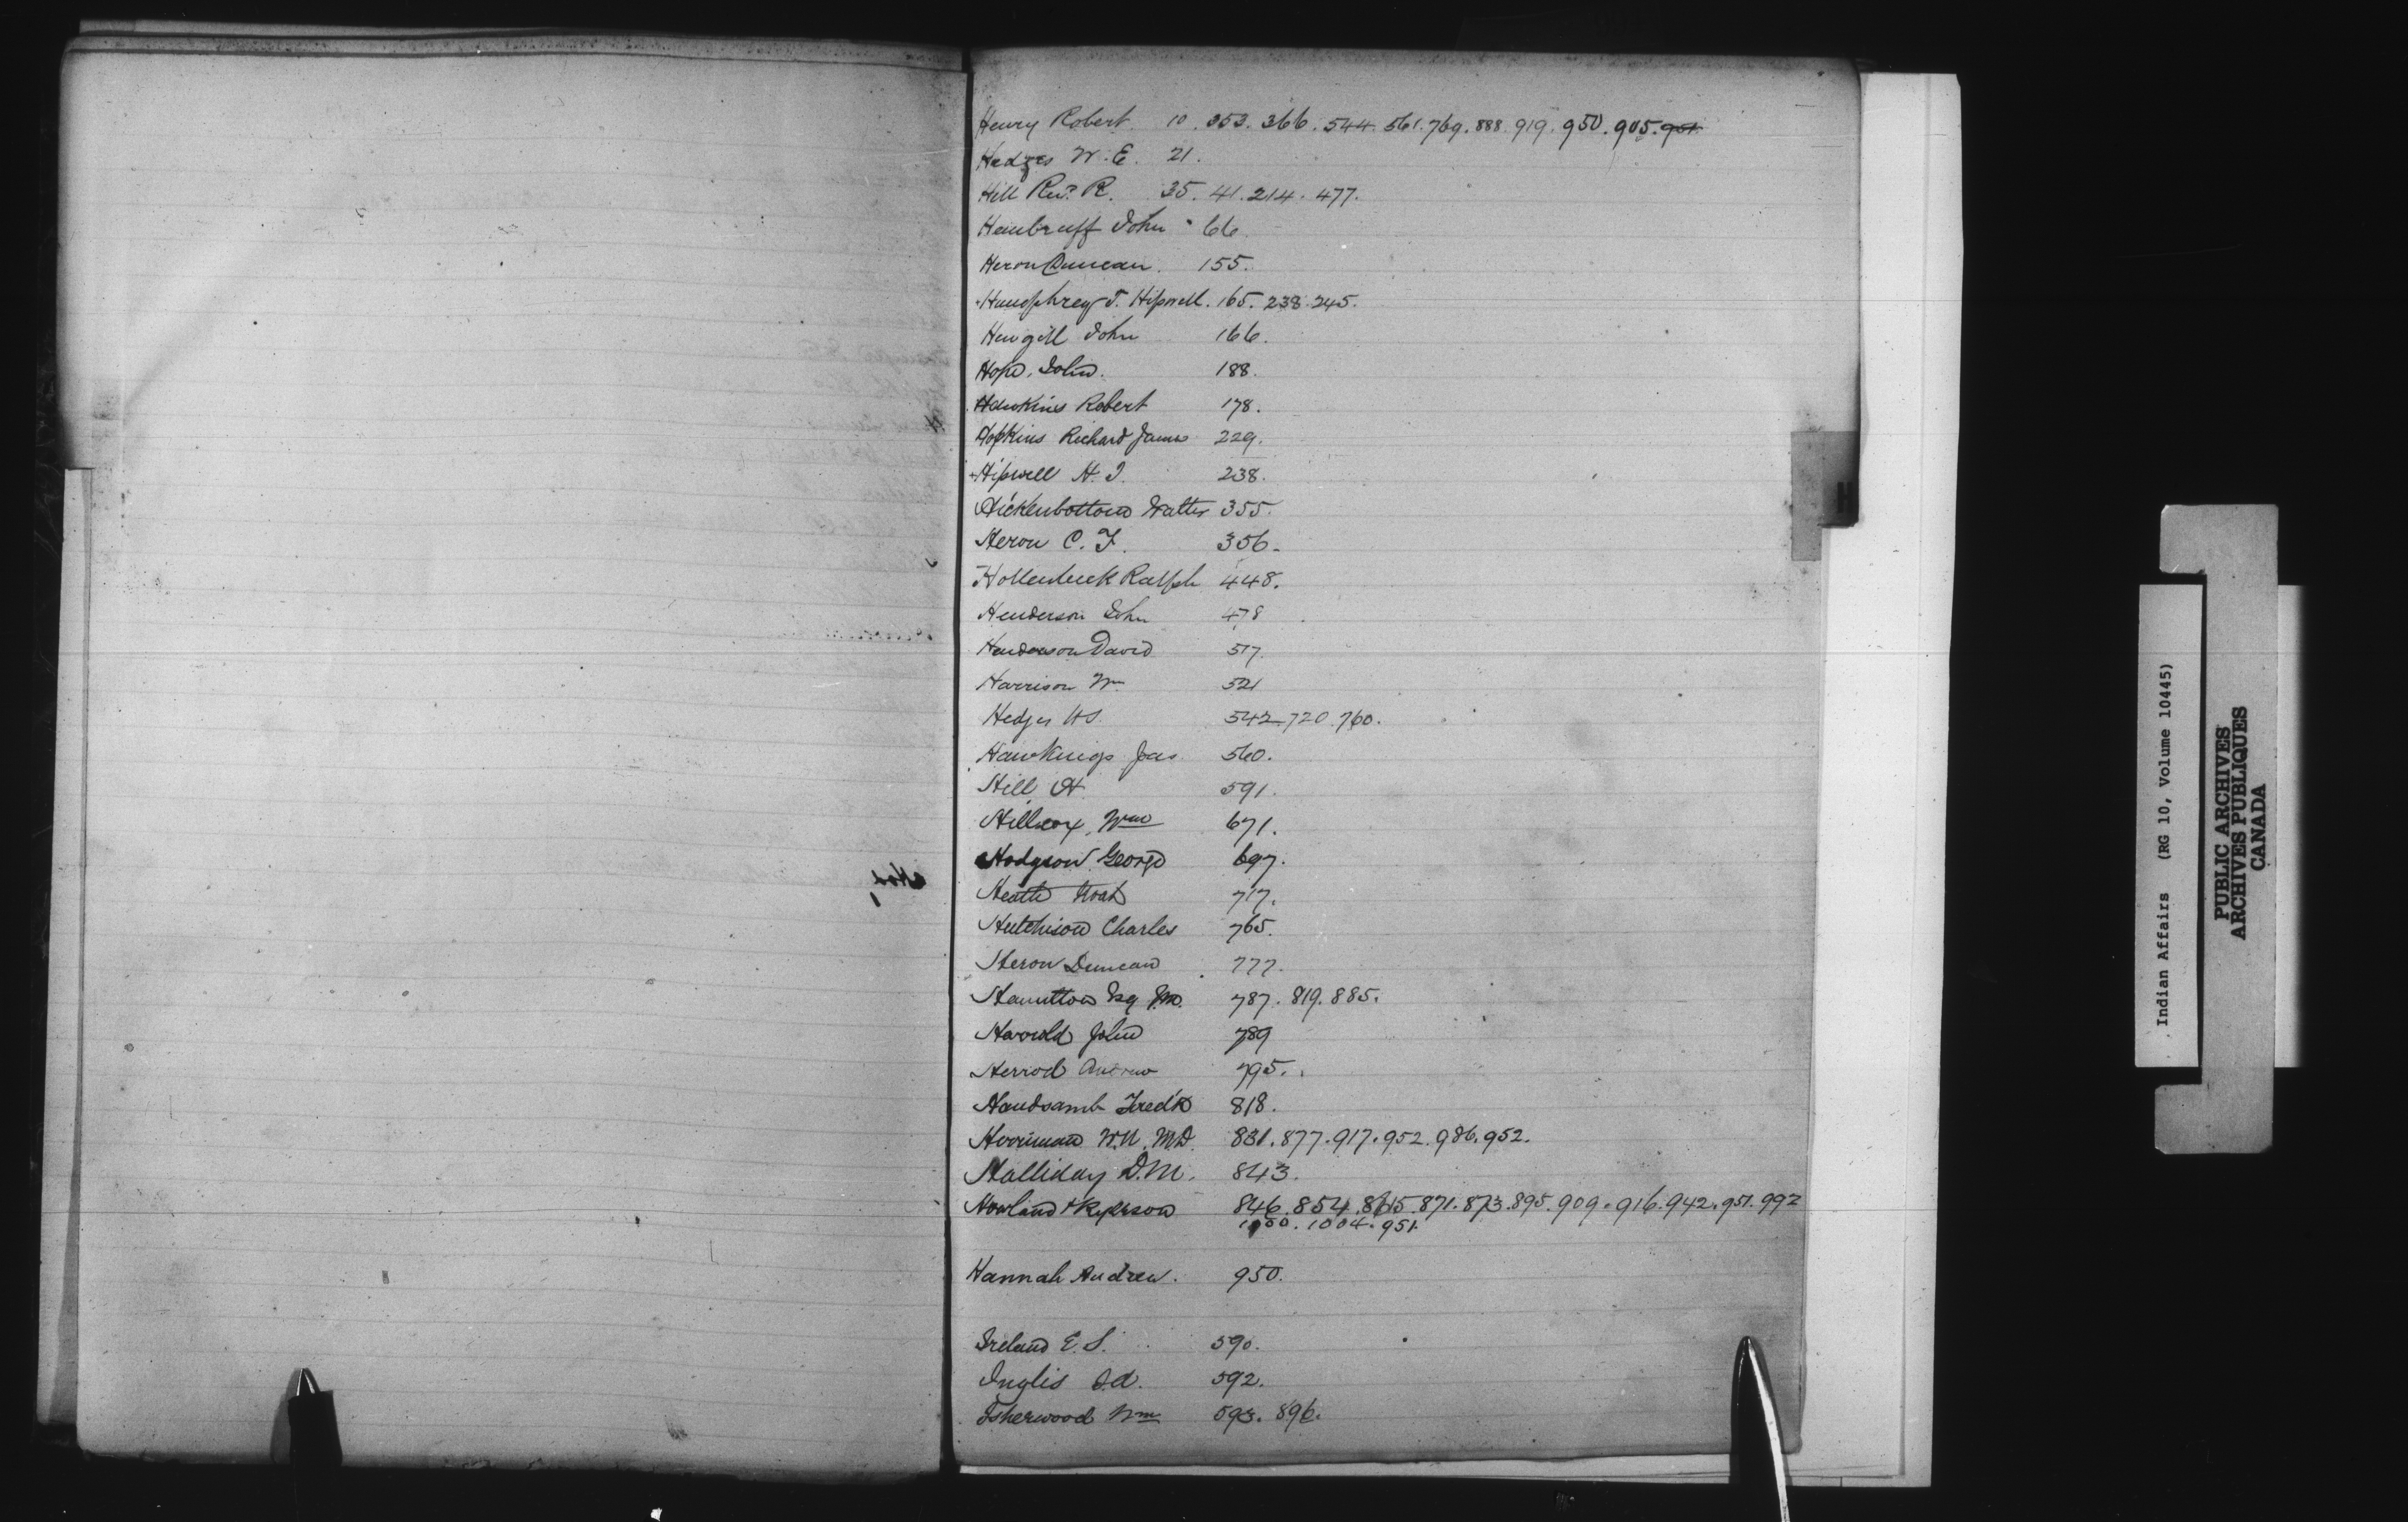 Henry Robert. 10. 353. 366. 544. 561. 769. 888. 919. 950. 905. 951.
Hedges W. E. 21.
Hill Revd. R. 35. 41. 214. 477.
Hembruff John 66
Heron Duncan. 155.
Humphrey T. Hipwell. 165. 238. 245.
Hewgill John 166.
Hope, John. 188.
Hawkins Robert 178.
Hopkins Richard James 229.
Hipwell H. T. 238.
Hickenbottom Walter 355.
Heron C. F. 356.
Hollenbeck Ralph 448.
Henderson John 478
Henderson David 517.
Harrison Wm 521
Hedges 542. 720. 760.
Hawkings Jas 560.
Hill H. 591.
Hillcox, Wm 671.
Hodgson George 697.
Heath Noah 717.
Hutchison Charles 765.
Heron Duncan 777.
Hamilton Esq 787. 819. 885.
Harrold John 789
Herrod Andrew 795.
Handsamb Fred'k 818.
Herriman W. N. M.D. 831. 877. 917. 952. 986. 952.
Halliday D. M. 843.
Howland & Ryerson 846. 854. 871. 873. 895. 909. 916. 942. 951. 992
1004. 951.
Hannah Andrew. 950.
Ireland E. S. 590.
Inglis 592.
Isherwood Wm 593. 896.
H
Indian Affairs (RG 10, Volume 10445)
PUBLIC ARCHIVES
ARCHIVES PUBLIQUES
CANADA